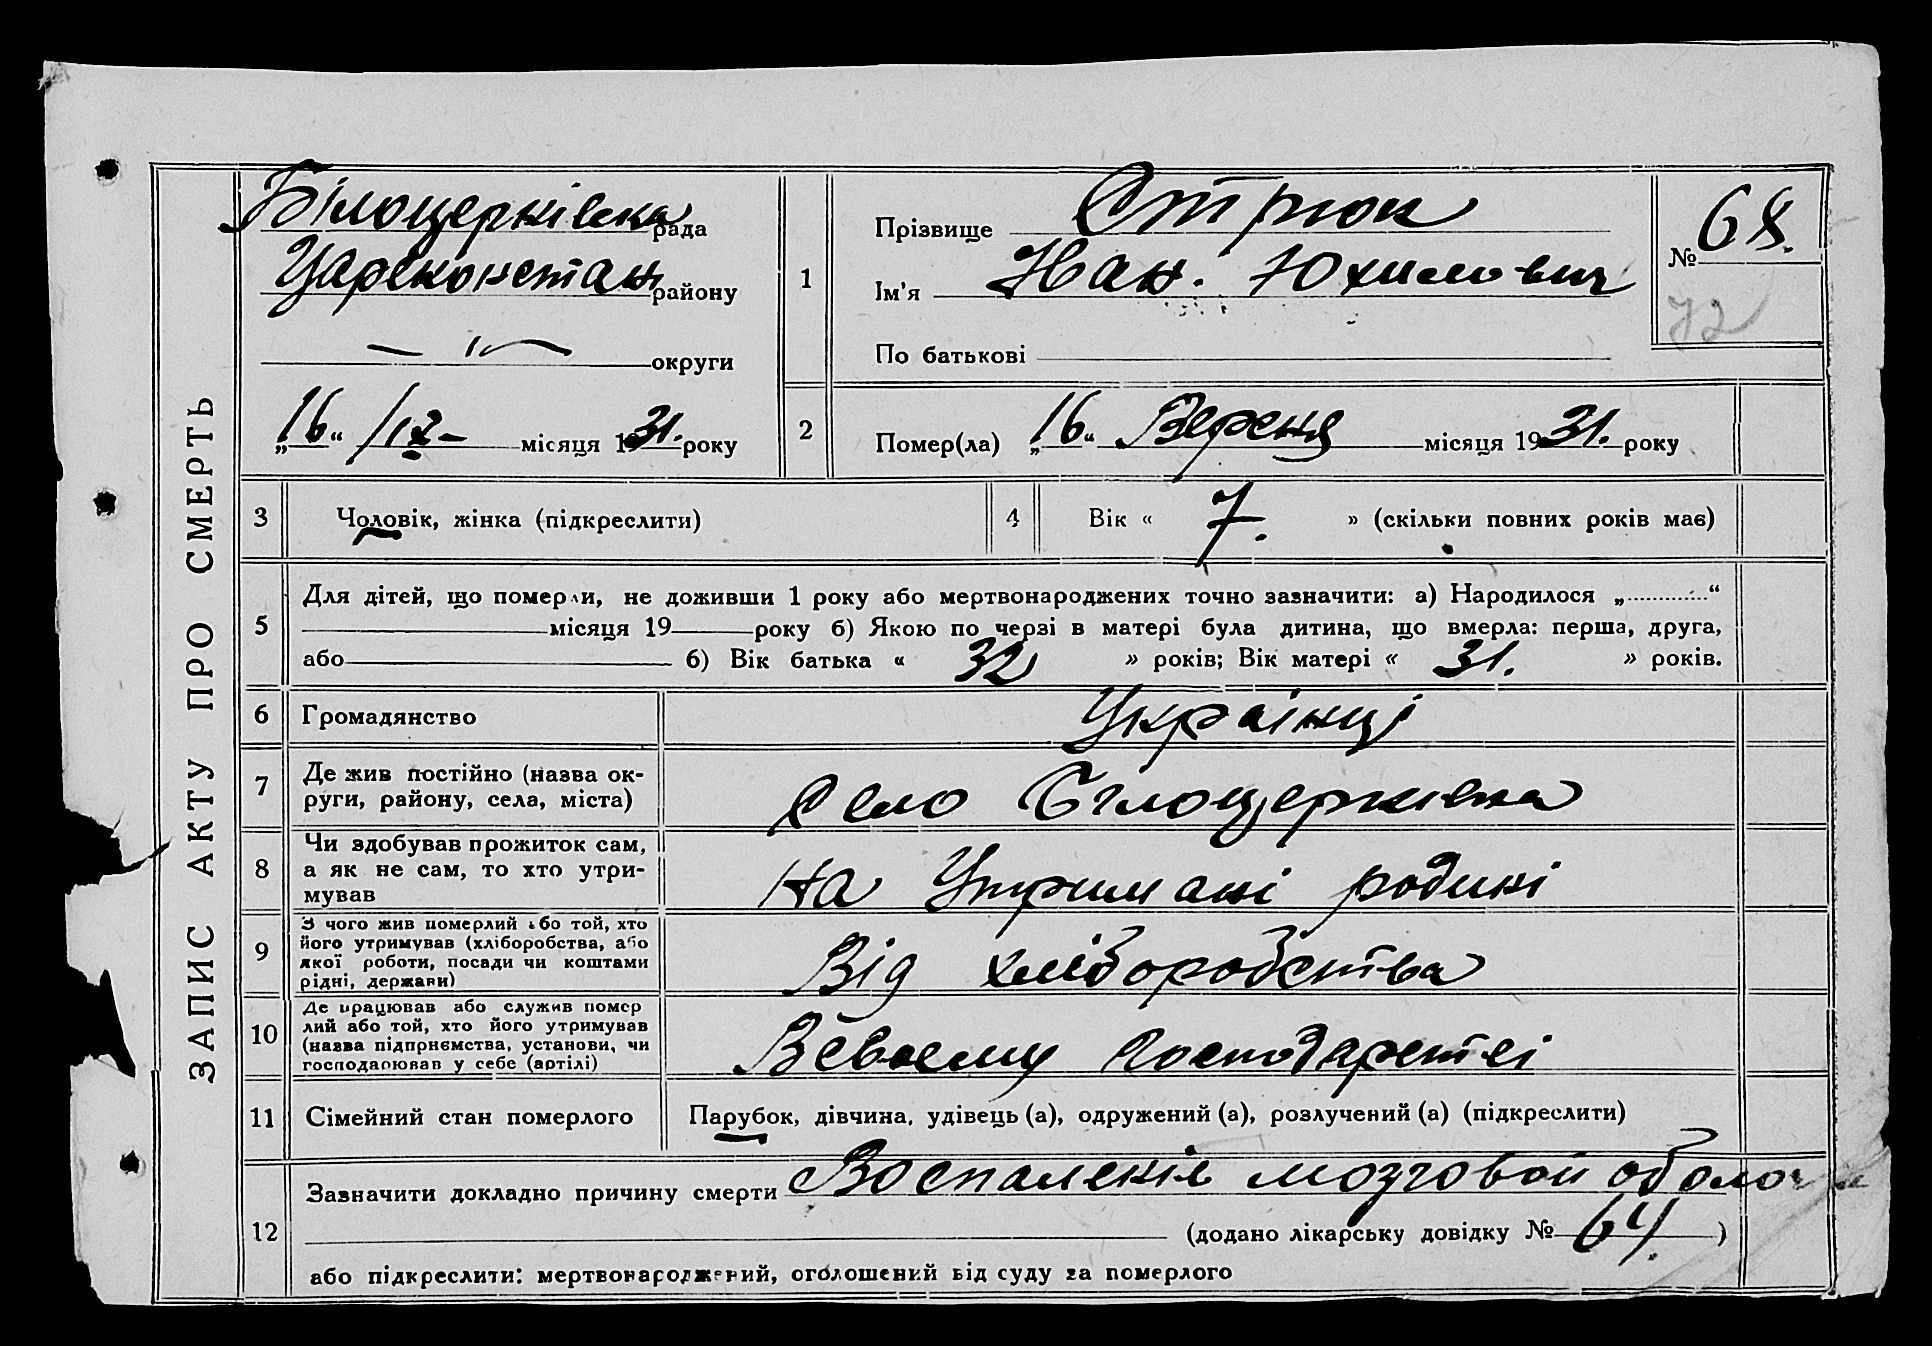 ЗАПИС АКТУ ПРО СМЕРТЬ
Білоцерківска рада
Цареконстан району
округи
„16“ /IX- місяця 1931. року
1
Прізвище Стрюк
Ім'я Юхимович
По батькові
№ 68.
72
2
Помер(ла) „16“ Вересня місяця 1931. року
3
Чоловік, жінка (підкреслити)
4
Вік « 7. » (скільки повних років має)
5
Для дітей, що померли, не доживши 1 року або мертвонароджених точно зазначити: а) Народилося „ “
місяця 19 року б) Якою по черзі в матері була дитина, що вмерла: перша, друга,
або б) Вік батька « 32 » років; Вік матері « 31. » років.
6
Громадянство
Українці
7
Де жив постійно (назва ок-
руги, району, села, міста)
Село Білоцерківка
8
Чи здобував прожиток сам,
а як не сам, то хто утри-
мував
на Утримані родині
9
З чого жив померлий або той, хто
його утримував (хліборобства, або
якої роботи, посади чи коштами
рідні, держави)
Від хліборобства
10
Де працював або служив помер
лий або той, хто його утримував
(назва підприємства, установи, чи
господарював у себе (артілі)
Всвоєму господарстві
11
Сімейний стан померлого
Парубок, дівчина, удівець (а), одружений (а), розлучений (а) (підкреслити)
12
Зазначити докладно причину смерти Воспаленія мозговой
(додано лікарську довідку № 64. )
або підкреслити: мертвонароджений, оголошений від суду за померлого